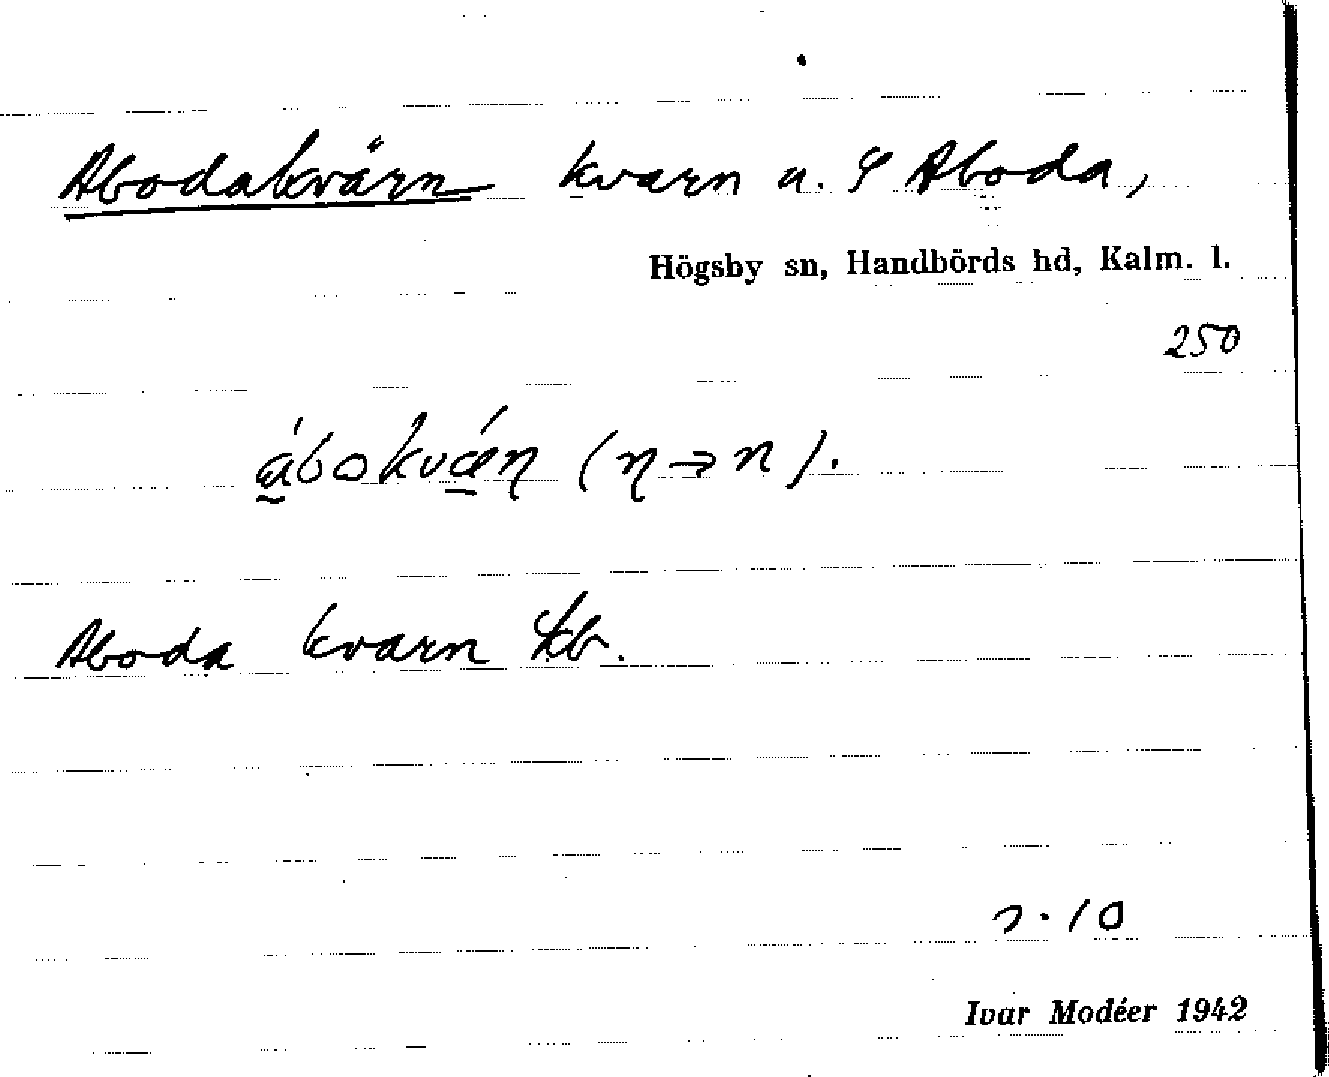 Abodakvärn kvarn u. S Aboda,
Högsby sn, Handbörds hd, Kalm. l.
250
ábokvǽn (n → n).
Aboda kvarn kb.
10
Ivar Modéer 1942